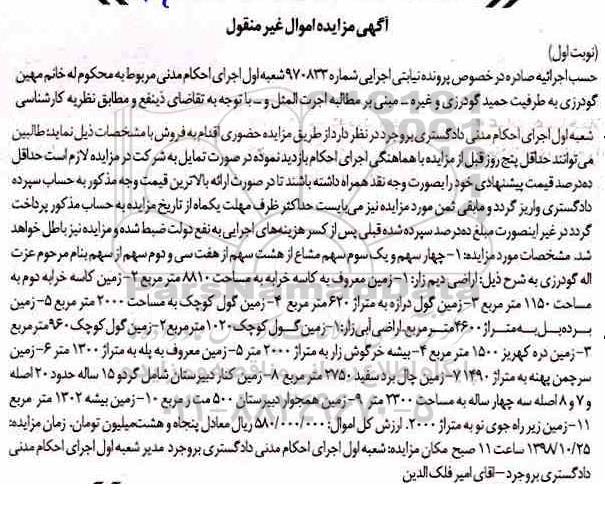 آگهی مزایده اموال غیر منقول
(نوبت اول)
حسب اجرائیه صادره در خصوص پرونده نیابتی اجرایی شماره ۹۷۰۸۳۳ شعبه اول اجرای احکام مدنی مربوط به محکوم له خانم مهین
گودرزی به طرفیت حمید گودرزی و غیره ـ مبنی بر مطالبه اجرت المثل و ـ با توجه به تقاضای ذینفع و مطابق نظریه کارشناسی
شعبه اول اجرای احکام مدنی دادگستری بروجرد در نظر دارد از طریق مزایده حضوری اقدام به فروش با مشخصات ذیل نماید: طالبین
می‌توانند حداقل پنج روز قبل از مزایده با هماهنگی اجرای احکام بازدید نموده در صورت تمایل به شرکت در مزایده لازم است حداقل
ده درصد قیمت پیشنهادی خود را بصورت وجه نقد همراه داشته باشند تا در صورت ارائه بالاترین قیمت وجه مذکور به حساب سپرده
دادگستری واریز گردد و مابقی ثمن مورد مزایده نیز می‌بایست حداکثر ظرف مهلت یکماه از تاریخ مزایده به حساب مذکور پرداخت
گردد در غیر اینصورت مبلغ ده درصد سپرده شده قبلی پس از کسر هزینه‌های اجرایی به نفع دولت ضبط شده و مزایده نیز باطل خواهد
شد. مشخصات مورد مزایده: ۱- چهار سهم و یک سوم سهم مشاع از هشت سهم از هفت سی و دوم سهم از سهم بنام مرحوم عزت
اله گودرزی به شرح ذیل: اراضی دیم زار: ۱- زمین معروف به کاسه خرابه به مساحت ۸۸۱۰ متر مربع ۲- زمین کاسه خرابه دوم به
مساحت ۱۱۵۰ متر مربع ۳- زمین گول درازه به متراژ ۶۲۰ متر مربع ۴- زمین گول کوچک به مساحت ۲۰۰۰ متر مربع ۵- زمین
برده‌بل به متراژ ۴۶۰۰ متر مربع. اراضی آبی زار: ۱- زمین گول کوچک ۱۰۲۰ متر مربع ۲- زمین گول کوچک ۹۶۰ متر مربع
۳- زمین دره کهریز ۱۵۰۰ متر مربع ۴- بیشه خرگوش زار به متراژ ۲۰۰۰ متر ۵- زمین معروف به پله به متراژ ۱۳۰۰ متر ۶- زمین
سرچمن پهنه به متراژ ۱۴۹۰ ۷- زمین چال برد سفید ۲۷۵۰ متر مربع ۸- زمین کنار دبیرستان شامل گردو ۱۵ ساله حدود ۲۰ اصله
و ۷ و ۸ اصله سه چهار ساله به مساحت ۲۳۰۰ متر ۹- زمین همجوار دبیرستان ۵۰۰ متر مربع ۱۰- زمین بیشه ۱۳۰۲ متر مربع
۱۱- زمین زیر راه جوی نو به متراژ ۲۰۰۰. ارزش کل اموال: ۵۸۰/۰۰۰/۰۰۰ ریال معادل پنجاه و هشت میلیون تومان. زمان مزایده:
۱۳۹۸/۱۰/۲۵ ساعت ۱۱ صبح مکان مزایده: شعبه اول اجرای احکام مدنی دادگستری بروجرد مدیر شعبه اول اجرای احکام مدنی
دادگستری بروجرد – آقای امیر فلک الدین